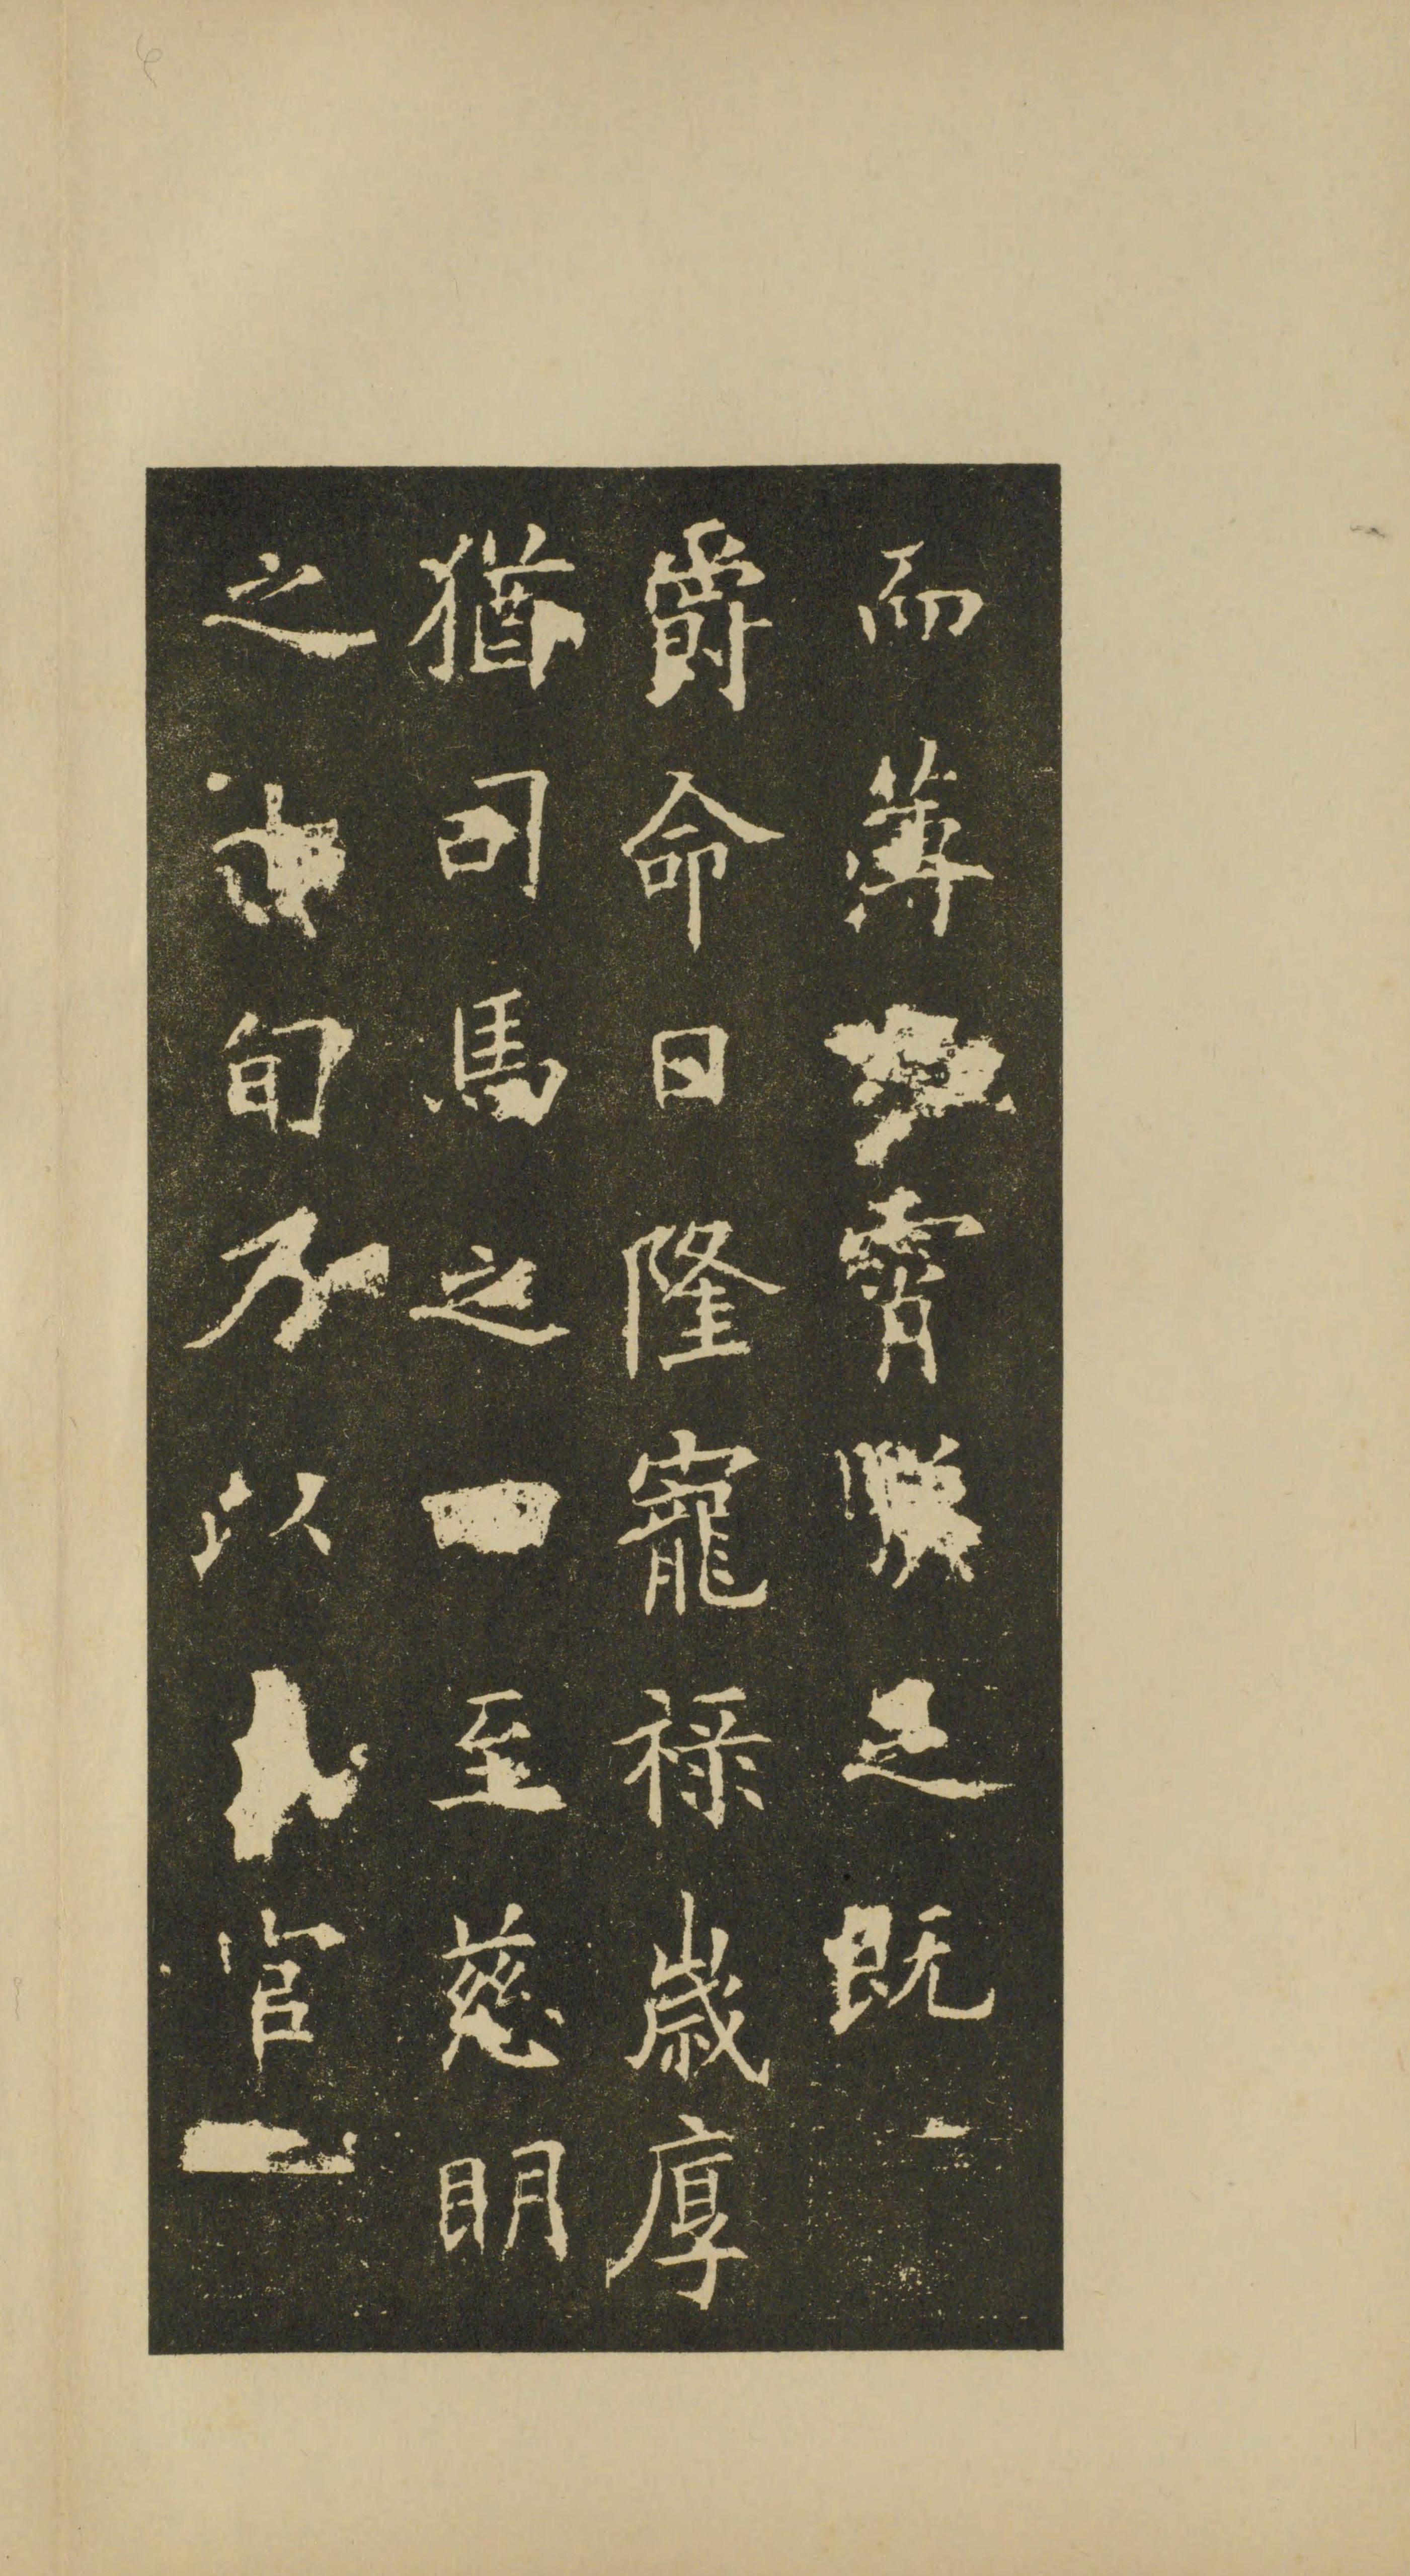 而薄霄漢之既
爵命日隆寵祿歲厚
猶司馬之至慈明
之旬不以官